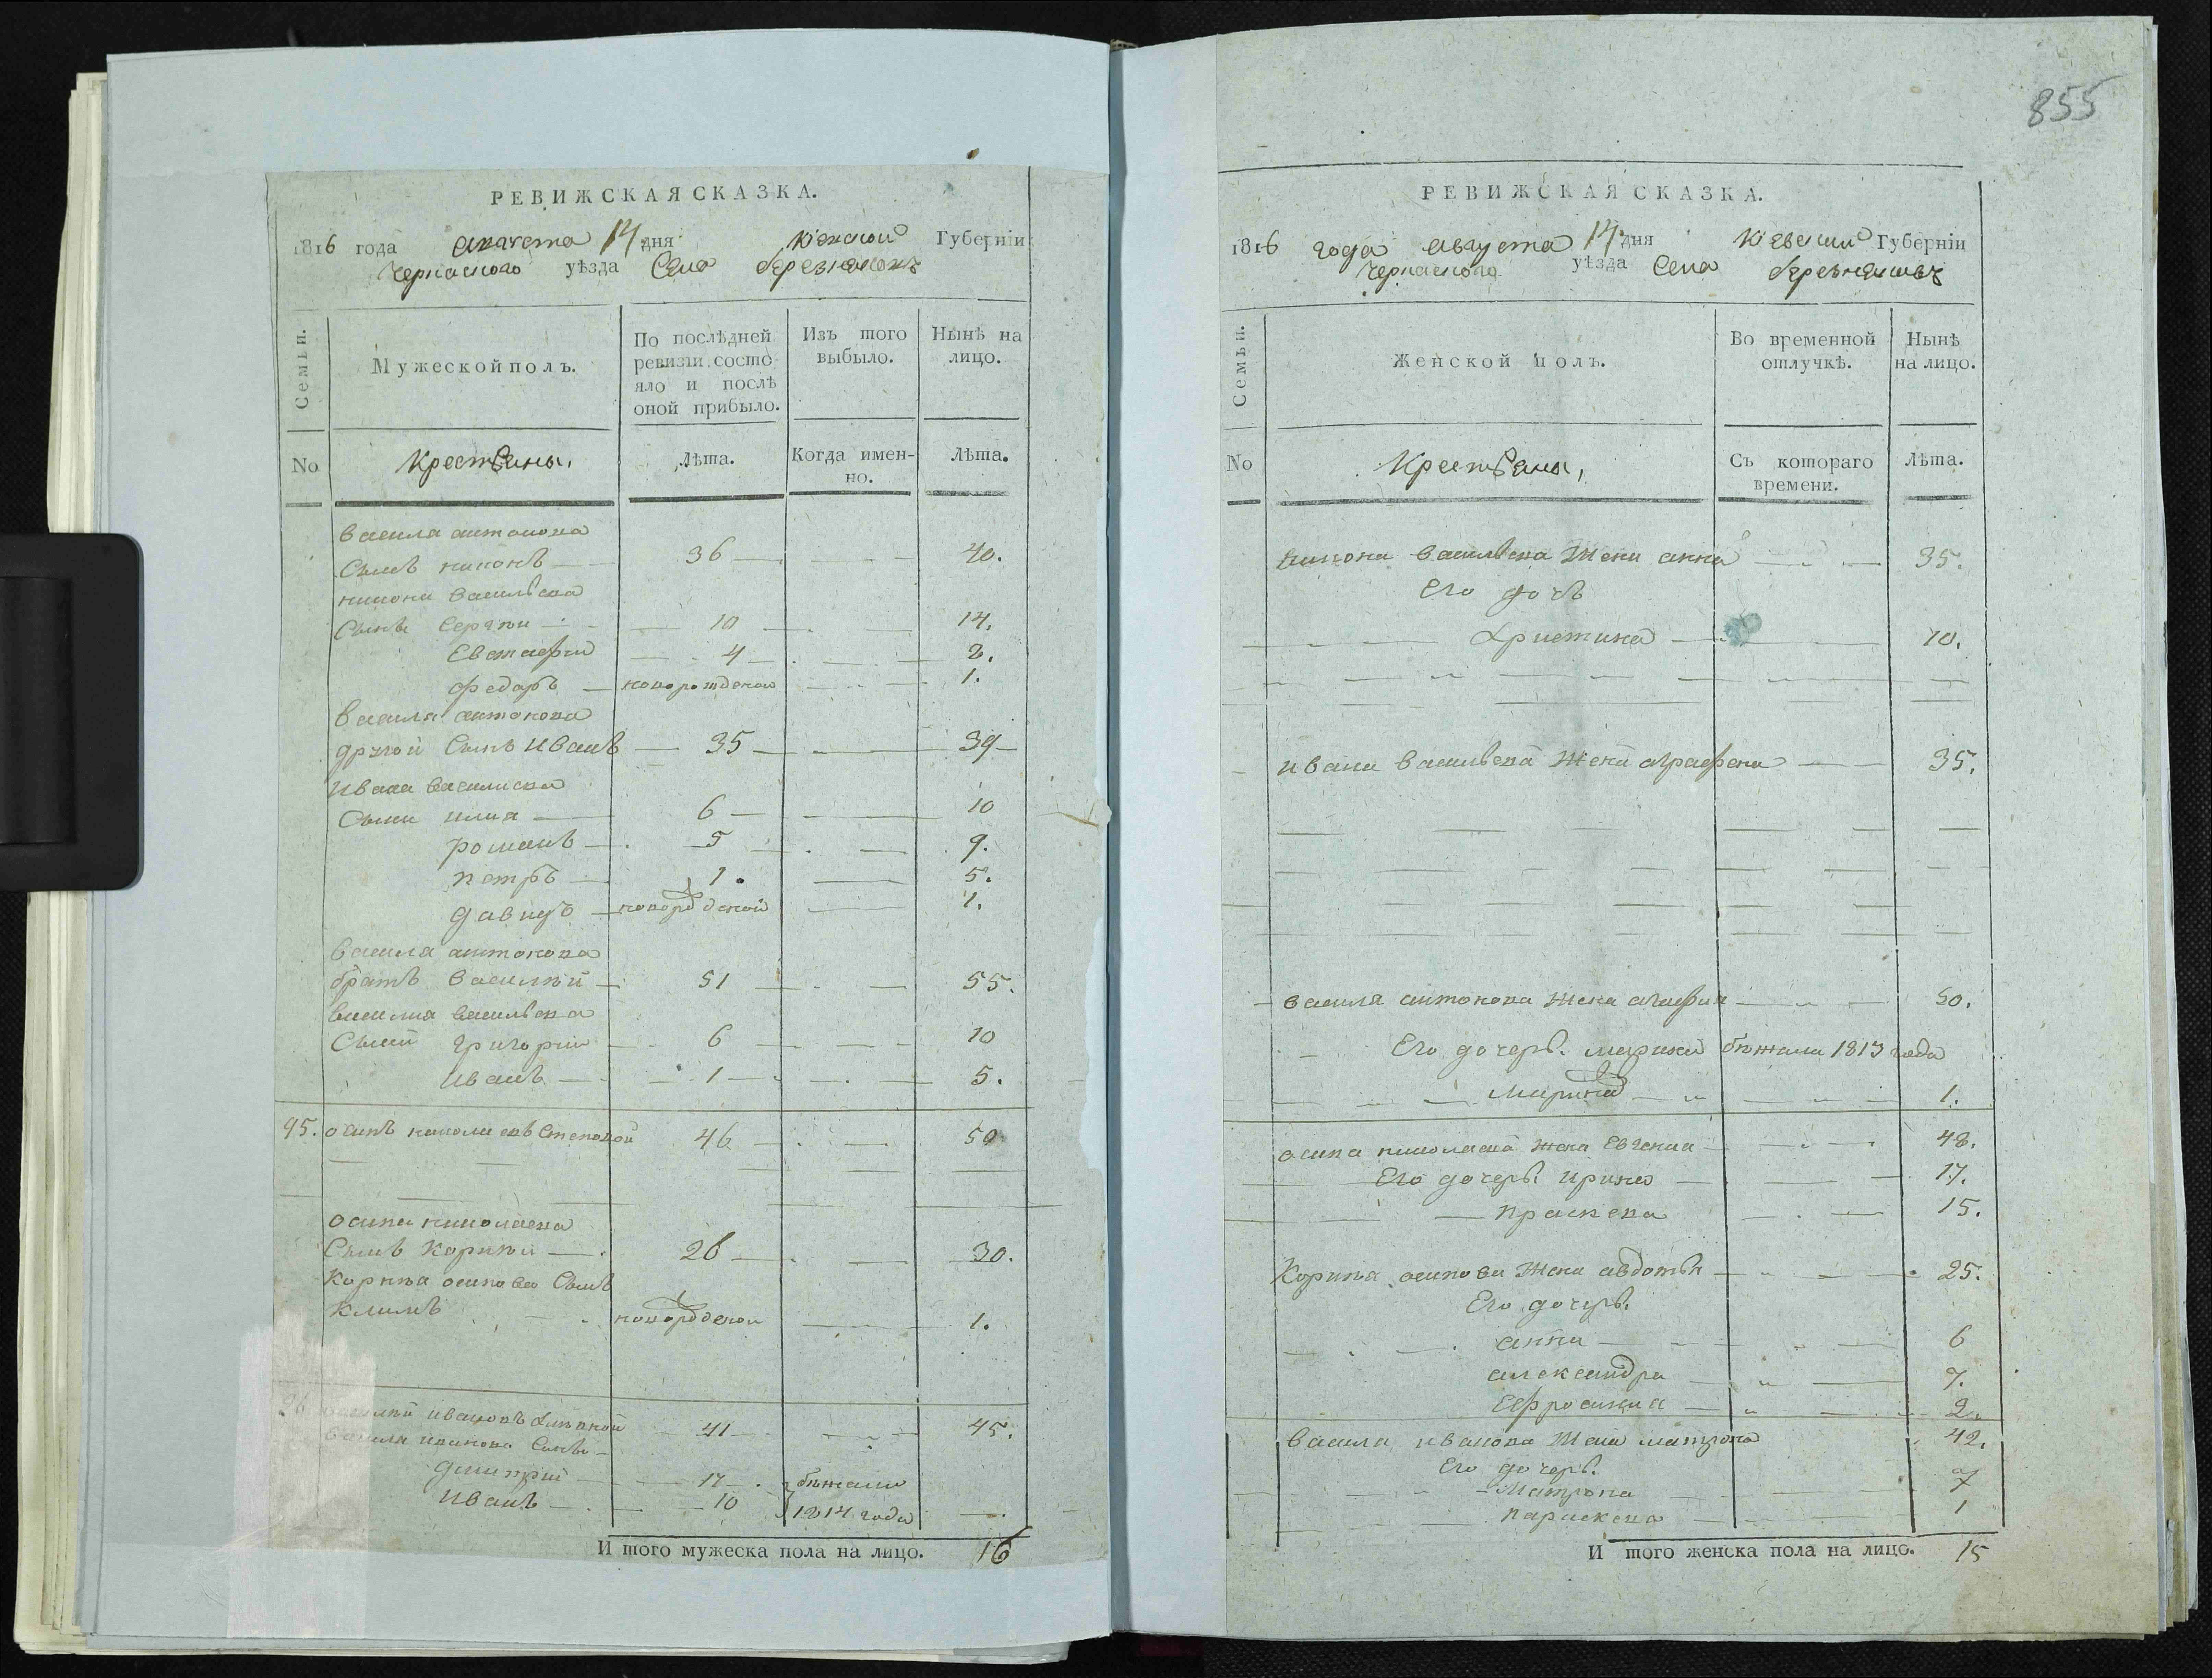 РЕВИЖСКАЯ СКАЗКА.
1816 года августа 14 дня Кіевской Губерніи
Черкаского уѣзда Села
Семьи.
Мужеской полъ.
По послѣдней ревизіи состояло и послѣ оной прибыло.
Изъ того выбыло.
Нынѣ на лицо.
No
Крестьяны,
Лѣта.
Когда именно.
Лѣта.
василя антонова
Сынъ никонъ — 36 — 40.
никона васильева
Сынъ Сергѣи — 10 — 14.
Евстафіи — 4 — 8.
Федоръ — новорожденои — 1.
василя антонова
другой Сынъ Иванъ — 35 — 39
Ивана василиева
Сыни илиа — 6 — 10
романъ — 5 — 9.
петръ — 1. — 5.
давидъ — новорожденой — 1.
василя антонова
братъ василѣй — 51 — 55.
василиа васильева
Сыни григорій — 6 — 10
Иванъ — 1 — 5.
95. осипъ николаевъ 46 — 50
осипа николаева
Сынъ Корнѣи — 26 — 30.
Корнѣа осипова Сынъ
Климъ — новорожденои — 1.
96 василѣй ивановъ 41 — 45.
василя иванова Сынъ
дмитрій — 17 — бѣжали
Иванъ — 10 1814 года —
И того мужеска пола на лицо. 16
855
РЕВИЖСКАЯ СКАЗКА.
1816 года августа 14 дня Кіевской Губерніи
Черкаского уѣзда Села
Семьи.
Женской полъ.
Во временной отлучкѣ.
Нынѣ на лицо.
No
Крестьяны,
Съ котораго времени.
Лѣта.
никона васильева Жена анна — 35.
Его дочь
Христина — 10.
ивана васильева Жена аграфена — 35.
василя антонова жена агафия — 50.
Его дочерь. бѣжала 1813 года
Марина — 1.
осипа николаева жена Евгения — 48.
Его дочерь ирина — 17.
праскева — 15.
Корнѣа осипова Жена авдотья — 25.
Его дочерь.
анна — 6
александра — 7.
Ефросиниа — 2.
василя иванова Жена матрона 42.
Его дочерь.
Матрона 7
параскева — 1
И того женска пола на лицо. 15